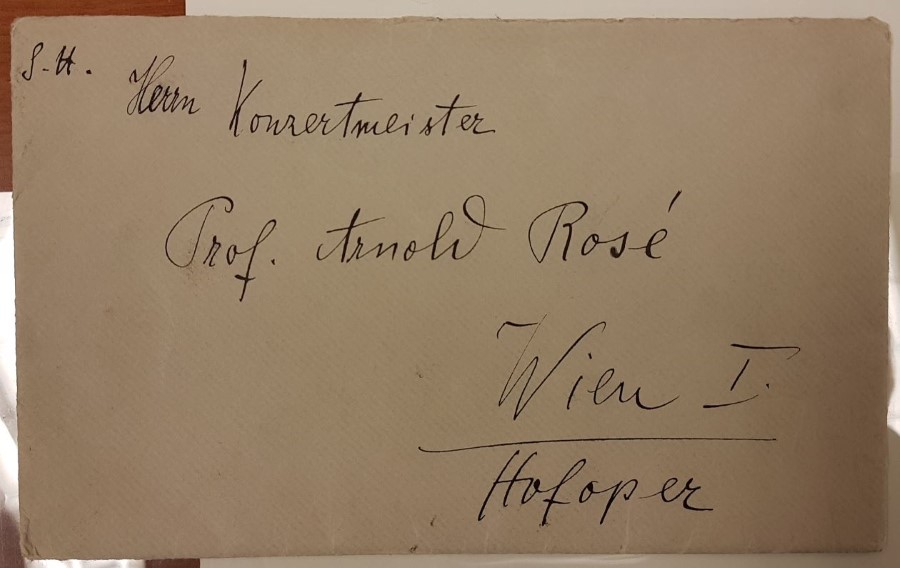 S. H.
Herrn Konzertmeister
Prof. Arnold Rosé
Wien I.
Hofoper